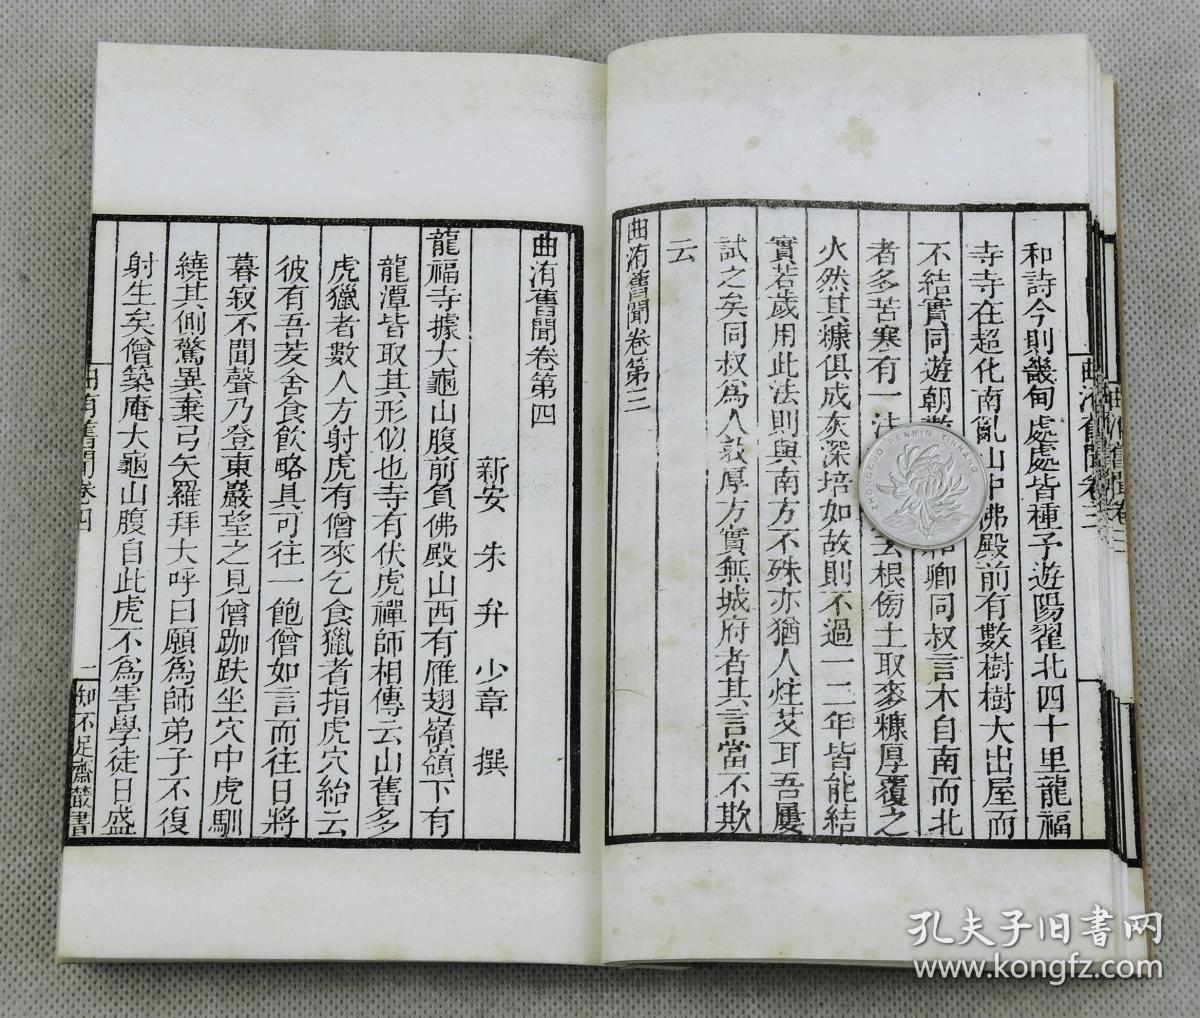 和詩今則畿甸處處皆種予遊陽翟北四十里龍福
寺寺在超化南亂山中佛殿前有數樹樹大出屋而
不結實同遊朝 和卿同叔言木自南而北
者多苦寒有一法 去根傍土取麥糠厚覆之
火然其糠俱成灰深培如故則不過一二年皆能結
實若歲用此法則與南方不殊亦猶人炷艾耳吾屢
試之矣同叔爲人敦厚方實無城府者其言當不欺
云
曲洧舊聞卷第三
曲洧舊聞卷第四
新安 朱弁 少章 撰
龍福寺據大龜山腹前負佛殿山西有雁翅嶺嶺下有
龍潭皆取其形似也寺有伏虎禪師相傳云山舊多
虎獵者數人方射虎有僧來乞食獵者指虎穴紿云
彼有吾茇舍食飲略具可往一飽僧如言而往日將
暮寂不聞聲乃登東巖望之見僧跏趺坐穴中虎馴
繞其側驚異棄弓矢羅拜大呼曰願爲師弟子不復
射生矣僧築庵大龜山腹自此虎不爲害學徒日盛
曲洧舊聞卷四
一
知不足齋叢書
曲洧舊聞卷三
曲洧舊聞卷三
ZHONGGUO RENMIN YINHANG
孔夫子旧书网
www.kongfz.com